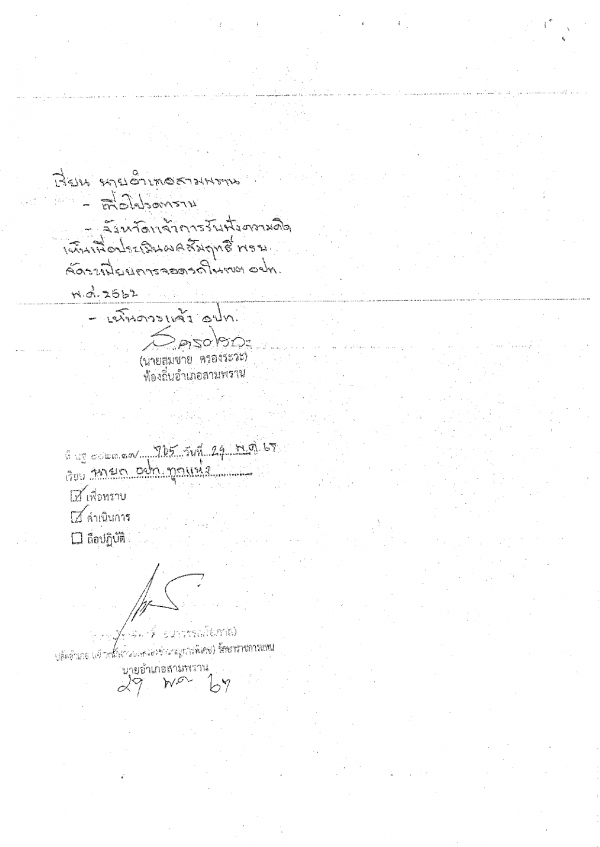 เรียน นายอำเภอสามพราน
- เพื่อโปรดทราบ
- จังหวัดแจ้งการรับฟังความคิด
เห็นเพื่อประเมินผลสัมฤทธิ์ พรบ.
จัดระเบียบการจอดรถในเขต อปท.
พ.ศ. 2562
- เห็นควรแจ้ง อปท.
(นายสมชาย ครองระวะ)
ท้องถิ่นอำเภอสามพราน
ที่ นฐ ๐๐๒๓.๑๗/ 765 วันที่ 29 พ.ค. 67
เรียน นายก อปท. ทุกแห่ง
เพื่อทราบ
ดำเนินการ
ถือปฏิบัติ
รักษาราชการแทน
นายอำเภอสามพราน
29 พ.ค. 67